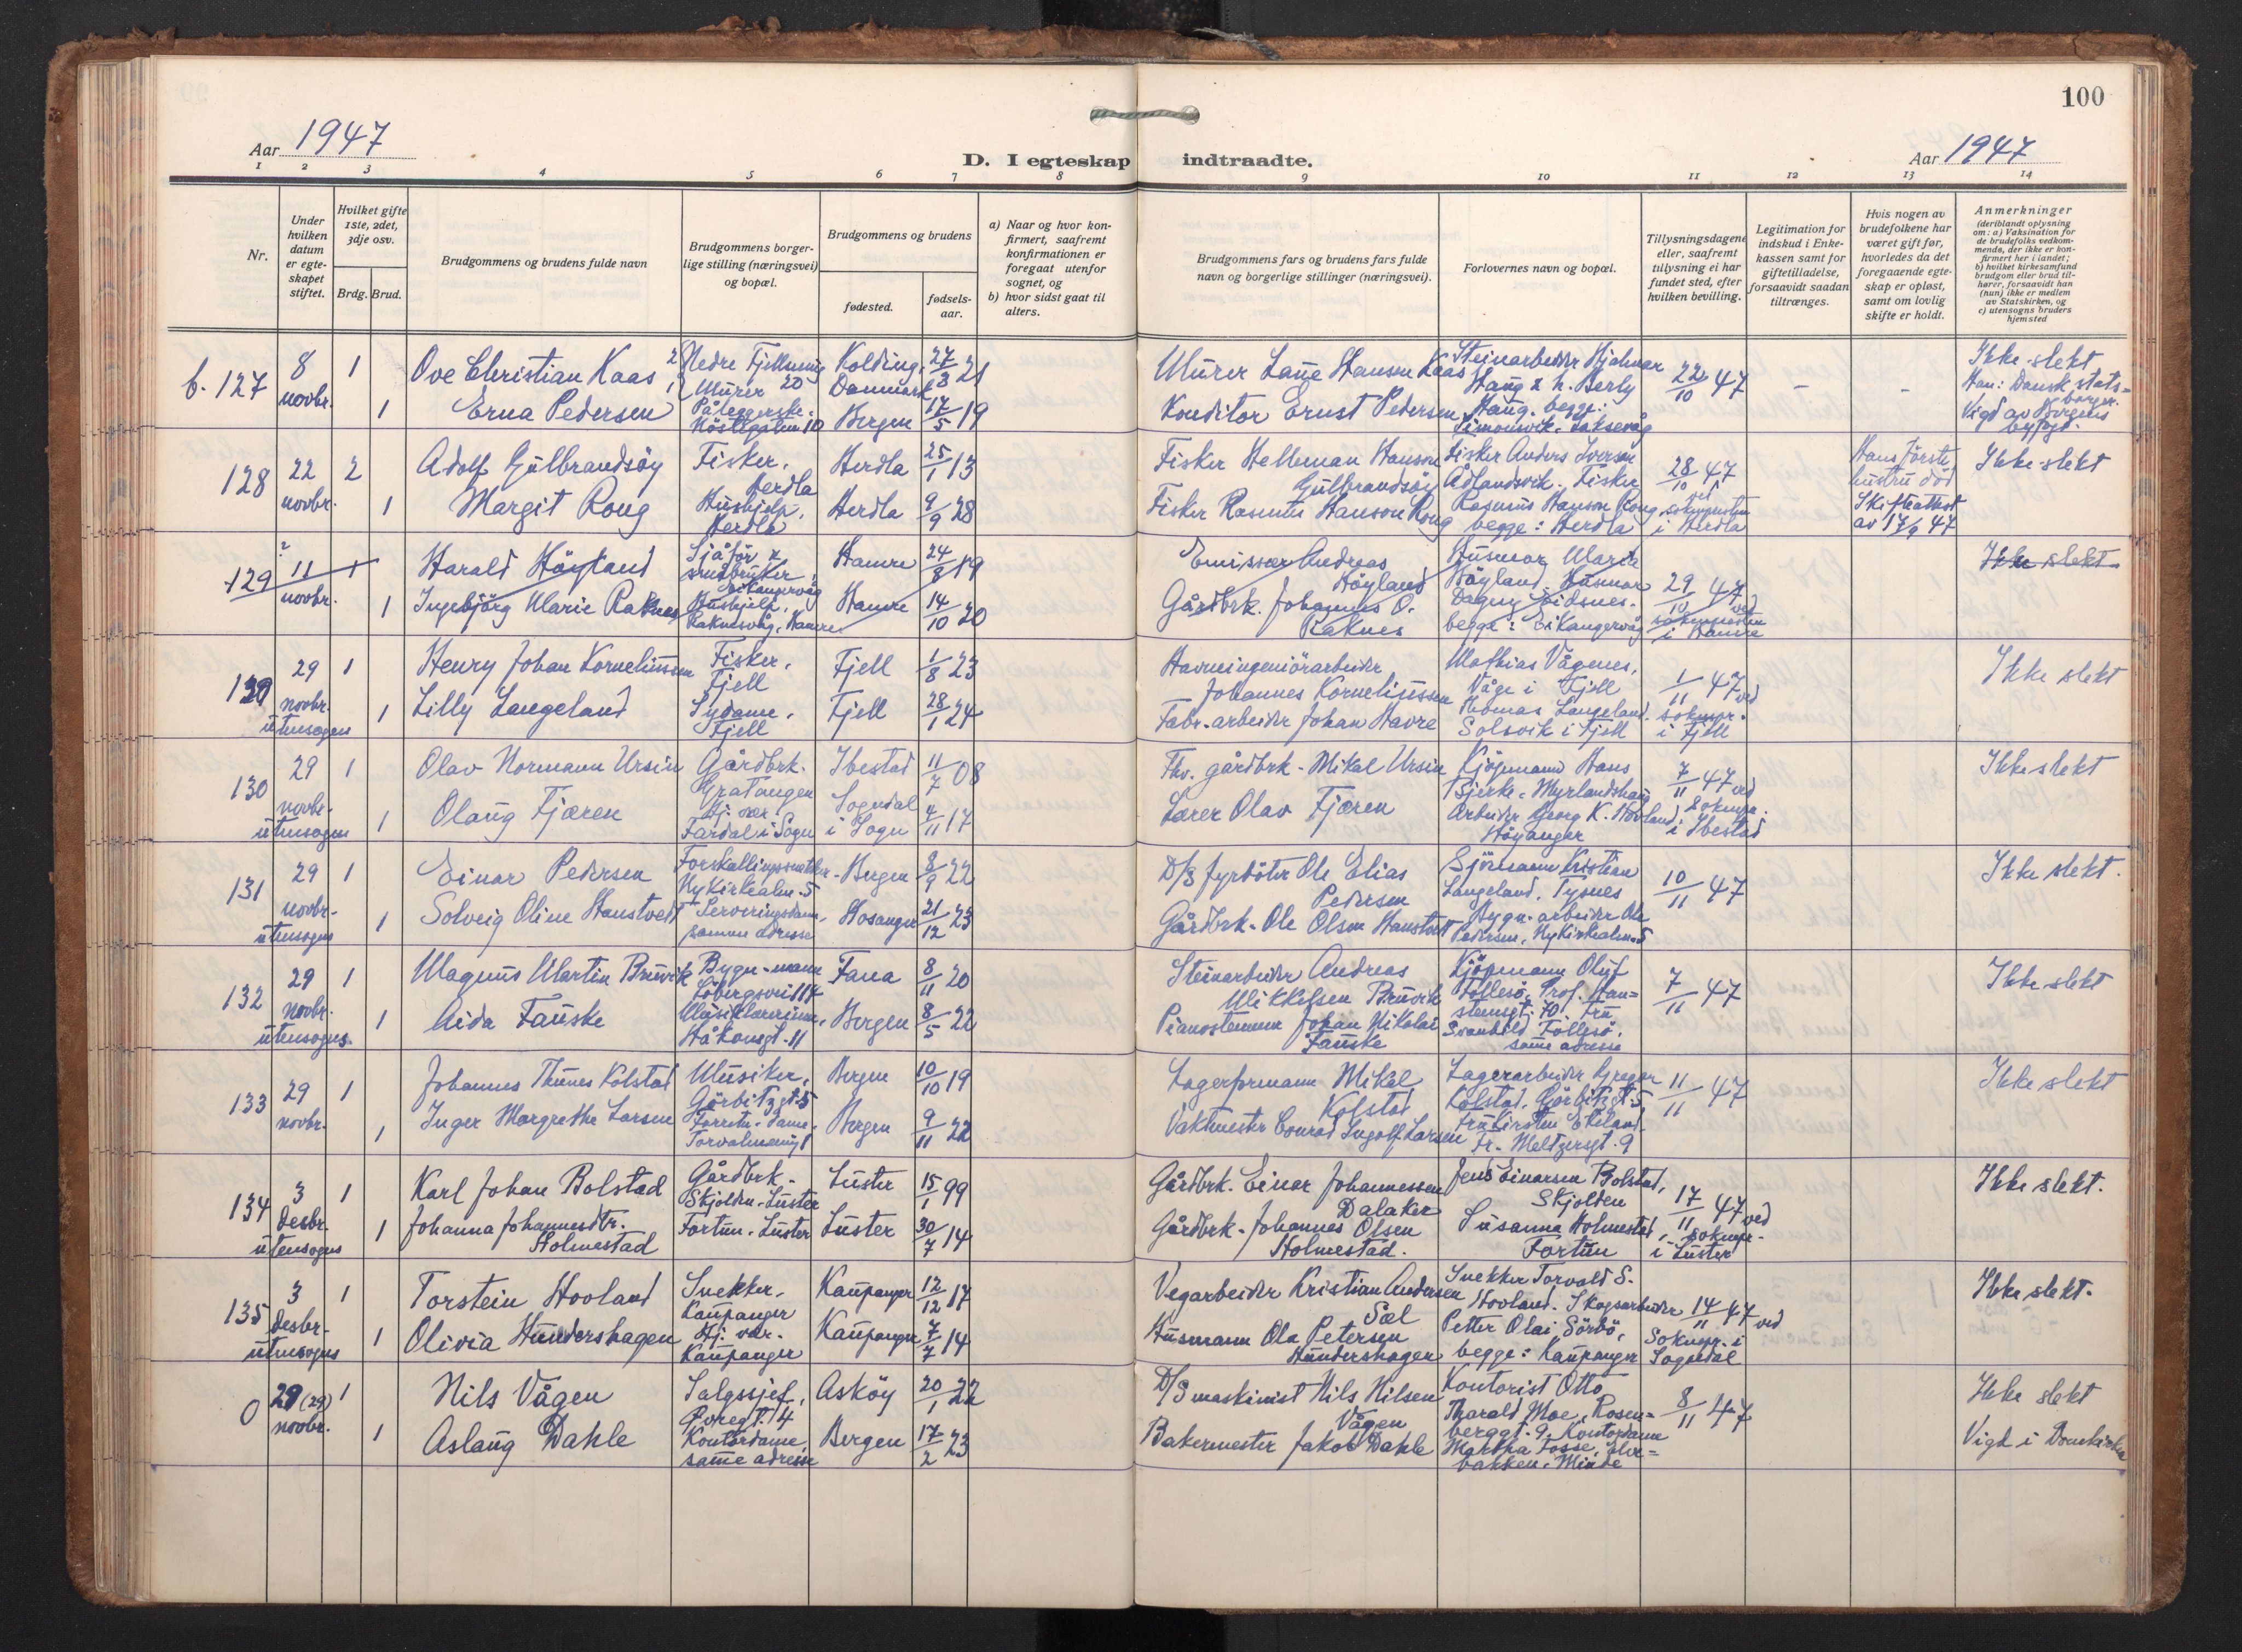 100
Aar 1947
D. I egteskap indtraadte.
Aar 1947
1 2 3 4 5 6 7 8 9 10 11 12 13 14
Nr.
Under hvilken datum er egteskapet stiftet.
Hvilket gifte 1ste, 2det, 3dje osv.
Brdg. Brud.
Brudgommens og brudens fulde navn
Brudgommens borgerlige stilling (næringsvei) og bopæl.
Brudgommens og brudens
fødested.
fødselsaar.
a) Naar og hvor konfirmert, saafremt konfirmationen er foregaat utenfor sognet, og
b) hvor sidst gaat til alters.
Brudgommens fars og brudens fars fulde navn og borgerlige stillinger (næringsvei).
Forlovernes navn og bopæl.
Tillysningsdagene eller, saafremt tillysning ei har fundet sted, efter hvilken bevilling.
Legitimation for indskud i Enkekassen samt for giftetilladelse, forsaavidt saadan tiltrænges.
Hvis nogen av brudefolkene har været gift før, hvorledes da det foregaaende egteskap er opløst, samt om lovlig skifte er holdt.
Anmerkninger
(deriblandt oplysning om: a) Vaksination for de brudefolks vedkommende, der ikke er konfirmert her i landet;
b) hvilket kirkesamfund brudgom eller brud tilhører, forsaavidt han (hun) ikke er medlem av Statskirken, og
c) utensogns bruders hjemsted
b. 127 8 novbr. 1 Ove Christian Kaas Nedre Fjellsmug 20 Murer Kolding, Danmark 27/3 21 Murer Laue Hansen Kaas Steinarbeider Hjalmar Haug & h. Berly 22/10 47 – – Ikke slekt
Han: Dansk statsborger.
1 Erna Pedersen Påleggerske. Bergen 17/5 19 Konditor Ernst Pedersen Haug. begge: Simonsvik, Laksevåg Vigd av Bergens byfogd.
128 22 novbr. 2 Adolf Gulbrandsöy Fisker, Herdla Herdla 25/1 13 Fisker Helleman Hanson Gulbrandsöy Fisker Anders Iversen Ådlandsvik. Fisker 28/10 47 ved Hans förste hustru död Ikke slekt
1 Margit Rong Hushjelp, Herdla Herdla 9/9 28 Fisker Rasmus Hanson Rong Rasmus Hanson Rong begge: Herdla soknepresten i Herdla Skifteattest av 17/9 47
129 11 novbr. 1 Harald Höyland Sjåför & småbruker, Eikangervåg Hamre 24/8 19 Emissær Andreas Höyland Husmor Marie Höyland. Husmor 29/10 47 ved Ikke slekt
1 Ingebjörg Marie Raknes Hushjelp, Raknesvåg, Hamre Hamre 14/10 20 Gårdbrk. Johannes O. Raknes Dagny Eidsnes. begge: Eikangervåg soknepresten i Hamre
129 29 novbr. utensogns 1 Henry Johan Korneliussen Fisker, Fjell Fjell 1/8 23 Havneingeniörarbeider Johannes Korneliussen Mathias Vågenes, Våge i Fjell 1/11 47 ved Ikke slekt
1 Lilly Langeland Sydame, Fjell Fjell 28/1 24 Fabr. arbeider Johan Havre Thomas Langeland, Solsvik i Fjell soknepr. i Fjell
130 29 novbr. utensogns 1 Olav Normann Ursin Gårdbrk. Gratangen Ibestad 11/7 08 Fhv. gårdbrk. Mikal Ursin Kjöpmann Hans Bjerke, Myrlandshaug 7/11 47 ved Ikke slekt
1 Olaug Fjæren Hj. vær. Fardal i Sogn Sogndal i Sogn 4/11 17 Lærer Olav Fjæren Arbeider Georg K. Hovland, Höyanger soknepr. i Ibestad
131 29 novbr. utensogns 1 Einar Pedersen Nykirkealm. 5 Bergen 8/9 22 D/S fyrböter Ole Elias Pedersen Sjömann Kristian Langeland, Tysnes 10/11 47 Ikke slekt.
1 Solveig Oline Hanstveit Serveringsdame, samme adresse Hosanger 21/12 23 Gårdbrk. Ole Olson Hanstveit Bygn. arbeider Ole Pedersen, Nykirkealm. 5
132 29 novbr. utensogns. 1 Magnus Martin Bruvik Bygn.-mann Löbergsvei 114 Fana 8/11 20 Steinarbeider Andreas Mikkelsen Bruvik Kjöpmann Oluf Follesö, Prof. Hansteensgt. 70. Fru 7/11 47 Ikke slekt
1 Aida Fauske Håkonsgt. 11 Bergen 8/5 22 Pianostemmer Johan Nikolai Fauske Svanhild Follesö, same adresse
133 29 novbr. 1 Johannes Thunes Kolstad Musiker, Görbitzgt. 5 Bergen 10/10 19 Lagerformann Mikal Kolstad Lagerarbeider Gregor Kolstad, Görbitzgt. 5 11/11 47 Ikke slekt
1 Inger Margrethe Larsen Forretn. dame, Bergen 9/11 22 Vaktmester Conrad Ingolf Larsen Fru Kirsten Eikeland, Fr. Meltzersgt. 9
134 3 desbr. utensogns 1 Karl Johan Bolstad Gårdbrk. Skjolden, Luster Luster 15/1 99 Gårdbrk. Einar Johannessen Dalaker Jens Einarsen Bolstad, Skjolden 17/11 47 ved Ikke slekt.
1 Johanna Johannesdtr. Holmestad Fortun, Luster Luster 30/7 14 Gårdbrk. Johannes Olsen Holmestad. Susanna Holmestad, Fortun soknepr. i Luster
135 3 desbr. utensogns 1 Torstein Hovland Snekker, Kaupanger Kaupanger 12/12 17 Vegarbeider Kristian Andersen Sæl Snekker Torvald S. Hovland. Skogsarbeider 14/11 47 ved Ikke slekt.
1 Olivia Hundershagen Hj. vær. Kaupanger Kaupanger 7/7 14 Husmann Ola Petersen Hundershagen Petter Olai Sörbö, begge: Kaupanger Soknepr. i Sogndal
0 29 (29) novbr. 1 Nils Vågen Salgssjef, Øvregt. 14 Asköy 20/1 22 D/S maskinist Nils Nilsen Vågen Kontorist Otto Tharald Moe, Rosenberggt. 9. Kontordame 8/11 47 Ikke slekt
1 Aslaug Dahle Kontordame, same adresse Bergen 17/2 23 Bakermester Jakob Dahle Martha Fosse, bakken, Minde Vigd i Domkirken